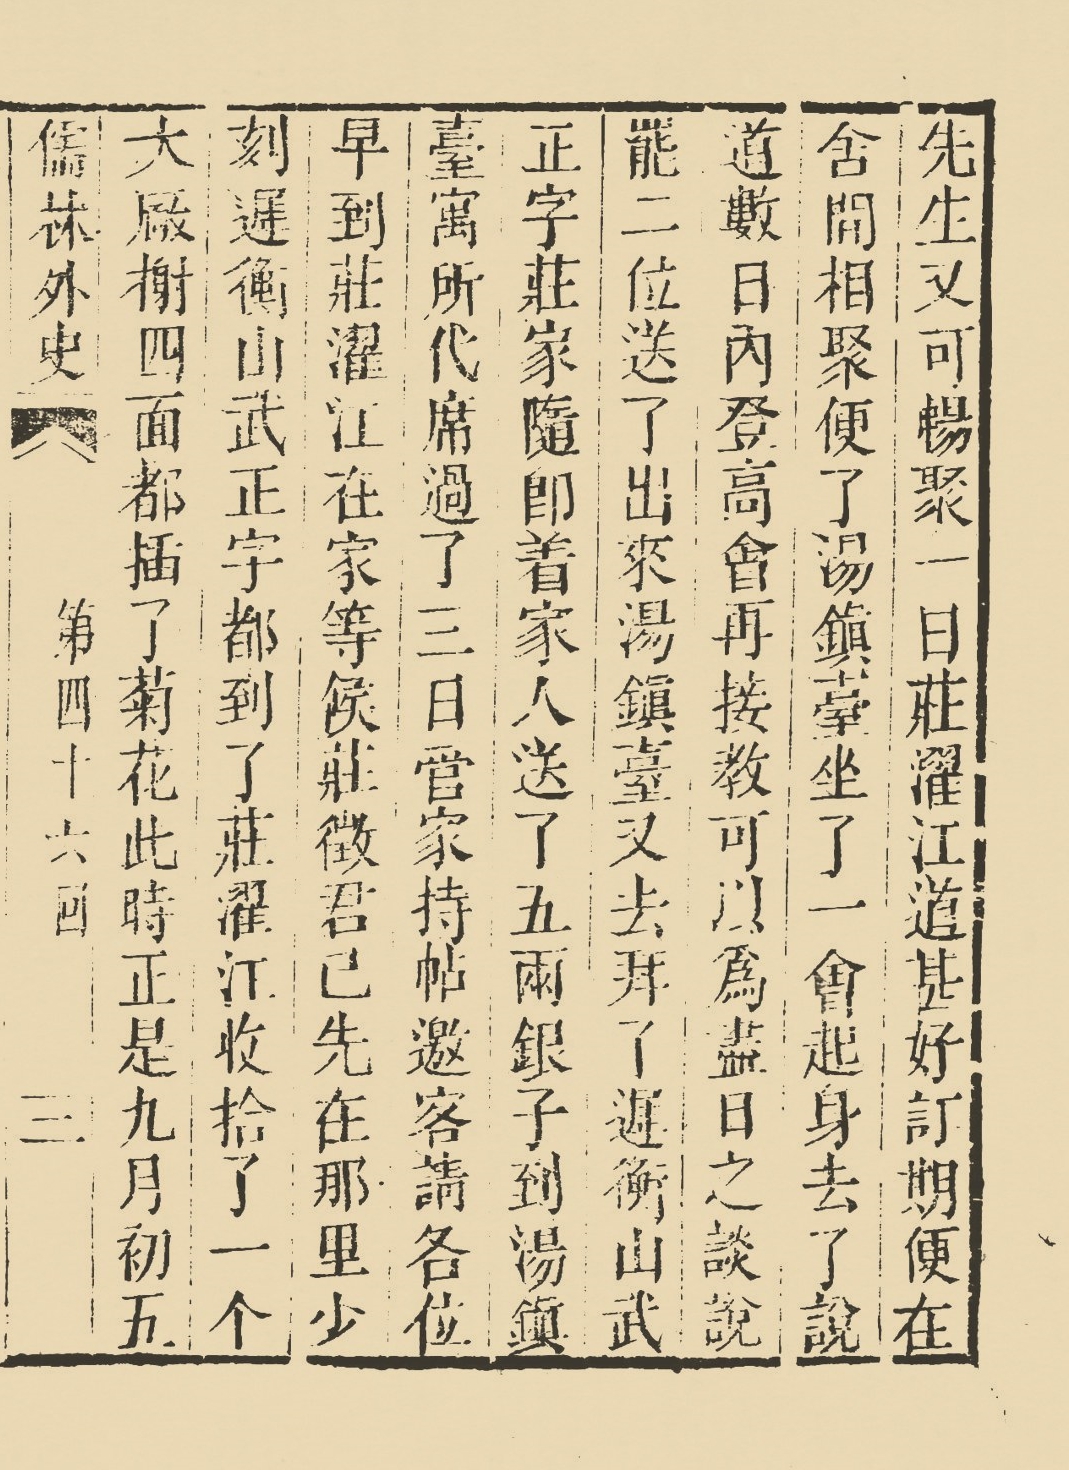 先生又可暢聚一日莊濯江道甚好訂期便在
舍間相聚便了湯鎮臺坐了一會起身去了說
道數日內登高會再接教可以爲盡日之談說
罷二位送了出來湯鎮臺又去拜了遲衡山武
正字莊家隨即着家人送了五兩銀子到湯鎮
臺寓所代席過了三日管家持帖邀客請各位
早到莊濯江在家等候莊徵君已先在那里少
刻遲衡山武正字都到了莊濯江收拾了一个
大厰榭四面都插了菊花此時正是九月初五
儒林外史 第四十六回 三